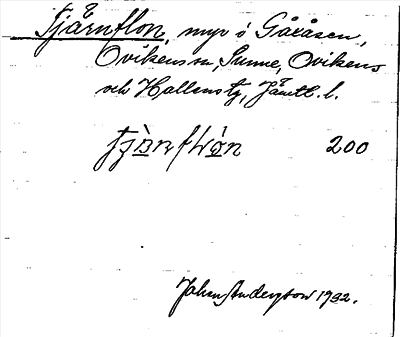 Tjärnflon, myr ö Gåxåsen,
Ovikens sn, Sunne, Ovikens
och Hallens tg, Jämtl. l.
200
Johan Anderzson 1932.